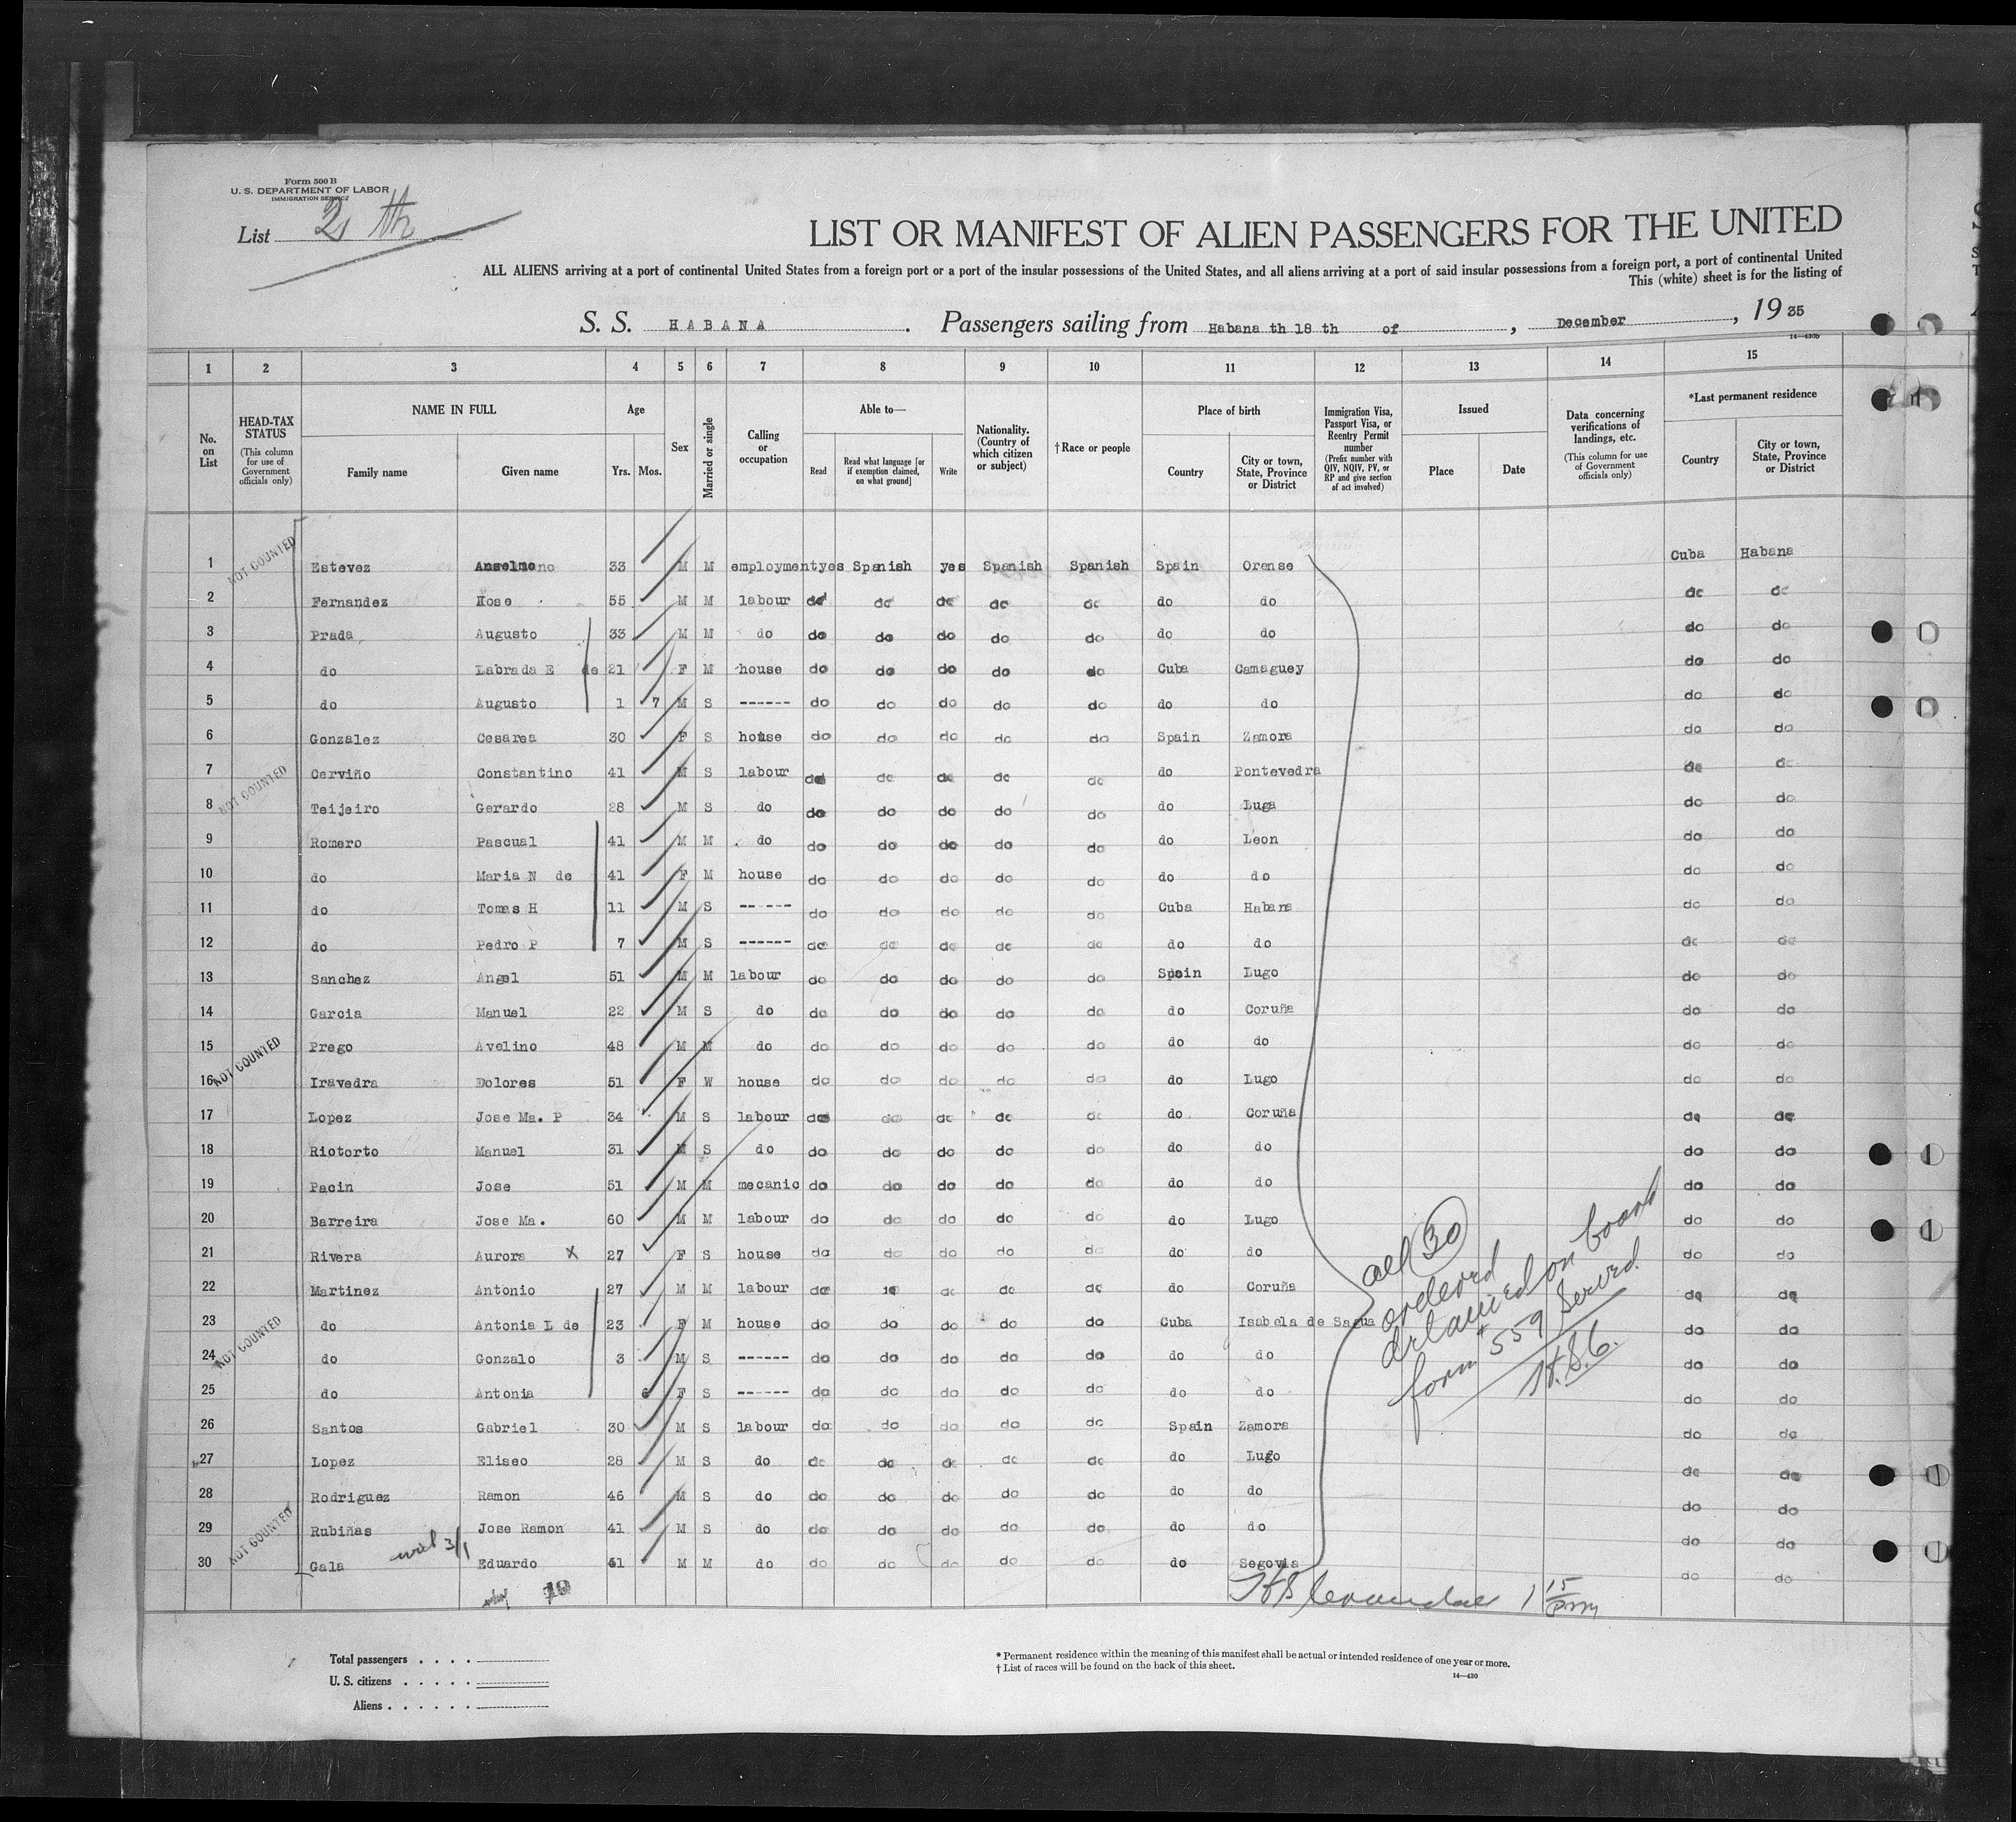 Form 500 B
U. S. DEPARTMENT OF LABOR
IMMIGRATION SERVICE
List 2 th
LIST OR MANIFEST OF ALIEN PASSENGERS FOR THE UNITED
ALL ALIENS arriving at a port of continental United States from a foreign port or a port of the insular possessions of the United States, and all aliens arriving at a port of said insular possessions from a foreign port, a port of continental United
This (white) sheet is for the listing of
S. S. HABANA . Passengers sailing from Habana th 18 th of , December , 19 35
14—430b
1 2 3 4 5 6 7 8 9 10 11 12 13 14 15
No. on List
HEAD-TAX STATUS (This column for use of Government officials only)
NAME IN FULL
Family name
Given name
Age
Yrs. Mos.
Sex
Married or single
Calling or occupation
Able to—
Read
Read what language [or if exemption claimed, on what ground]
Write
Nationality. (Country of which citizen or subject)
†Race or people
Place of birth
Country
City or town, State, Province or District
Immigration Visa, Passport Visa, or Reentry Permit number (Prefix number with QIV, NQIV, PV, or RP and give section of act involved)
Issued
Place
Date
Data concerning verifications of landings, etc. (This column for use of Government officials only)
*Last permanent residence
Country
City or town, State, Province or District
NOT COUNTED
1 Estevez Anselmo 33 M M employment yes Spanish yes Spanish Spanish Spain Orense Cuba Habana
2 Fernandez Hose 55 M M labour do do do do do do do do do
3 Prada Augusto 33 M M do do do do do do do do do do
4 do Labrada E de 21 F M house do do do do do Cuba Camaguey do do
5 do Augusto 1 7 M S ------ do do do do do do do do do
6 Gonzalez Cesarea 30 F S house do do do do do Spain Zamora do do
NOT COUNTED
7 Cerviño Constantino 41 M S labour do do do do do do Pontevedra do do
8 Teijeiro Gerardo 28 M S do do do do do do do Luga do do
9 Romero Pascual 41 M M do do do do do do do Leon do do
10 do Maria N de 41 F M house do do do do do do do do do
11 do Tomas H 11 M S ------ do do do do do Cuba Habana do do
12 do Pedro P 7 M S ------ do do do do do do do do do
13 Sanchez Angel 51 M M labour do do do do do Spain Lugo do do
14 Garcia Manuel 22 M S do do do do do do do Coruña do do
15 Prego Avelino 48 M M do do do do do do do do do do
NOT COUNTED
16 Iravedra Dolores 51 F W house do do do do do do Lugo do do
17 Lopez Jose Ma. P 34 M S labour do do do do do do Coruña do do
18 Riotorto Manuel 31 M S do do do do do do do do do do
19 Pacin Jose 51 M M mecanic do do do do do do do do do
20 Barreira Jose Ma. 60 M M labour do do do do do do Lugo do do
21 Rivera Aurora X 27 F S house do do do do do do do do do
22 Martinez Antonio 27 M M labour do do do do do Coruña do do
23 do Antonia L de 23 F M house do do do do do Cuba Isabela de Sagua do do
NOT COUNTED
24 do Gonzalo 3 M S ------ do do do do do do do do do
25 do Antonia 6 F S ------ do do do do do do do do do
26 Santos Gabriel 30 M S labour do do do do do Spain Zamora do do
27 Lopez Eliseo 28 M S do do do do do do do Lugo do do
28 Rodriguez Ramon 46 M S do do do do do do do do do do
29 Rubiñas Jose Ramon 41 M S do do do do do do do do do do
NOT COUNTED
30 Gala Eduardo 61 M M do do do do do do do Segovia do do
all 30
ordered
detained on board
form 559 Served.
3/1
19
1 15 pm
Total passengers . . . .
U. S. citizens . . . . .
Aliens . . . . . .
* Permanent residence within the meaning of this manifest shall be actual or intended residence of one year or more.
† List of races will be found on the back of this sheet.
14—430